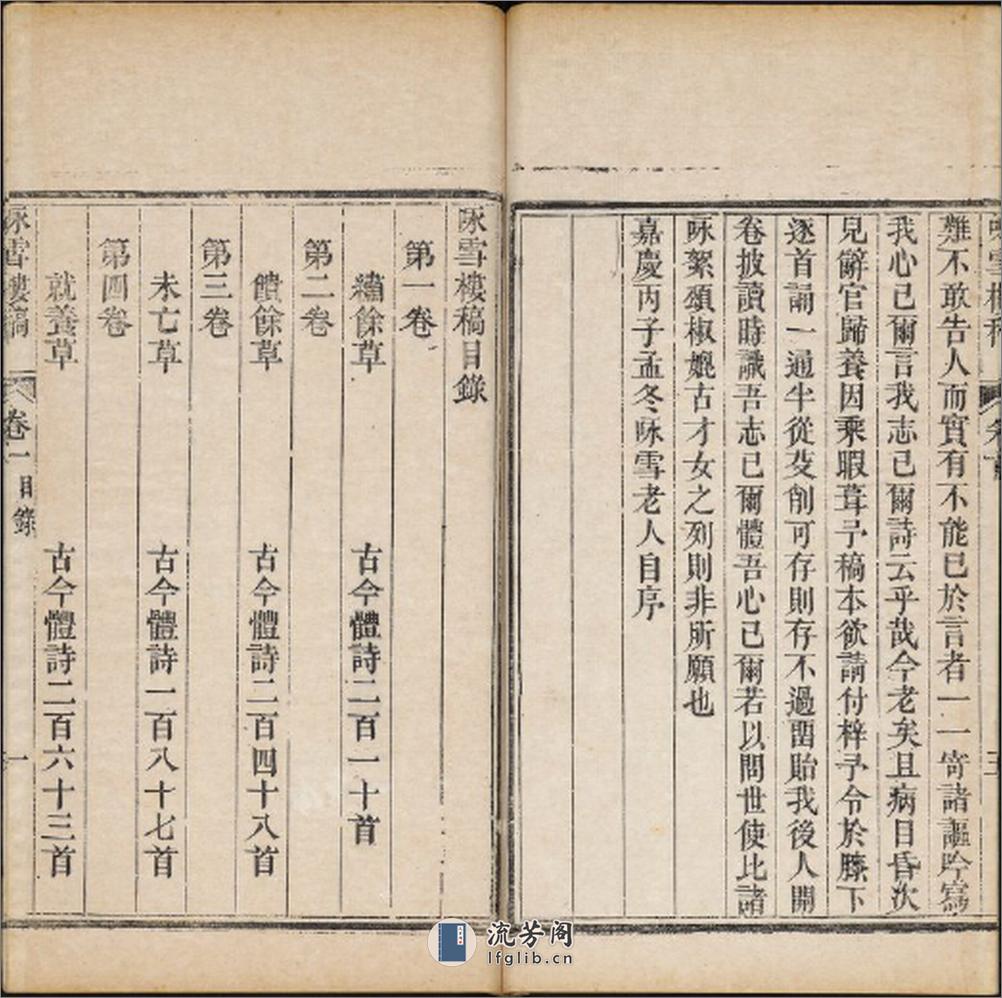 咏雪樓稿 卷首 三
難不敢告人而實有不能已於言者一一寄諸謳吟寫
我心已爾言我志已爾詩云乎哉今老矣且病目昏次
兒辭官歸養因乘暇葺予稿本欲請付梓予令於膝下
逐首誦一通半從芟削可存則存不過畱貽我後人開
卷披讀時識吾志已爾體吾心已爾若以問世使比諸
咏絮頌椒媲古才女之列則非所願也
嘉慶丙子孟冬咏雪老人自序
咏雪樓稿目錄
第一卷
繡餘草 古今體詩二百一十首
第二卷
饋餘草 古今體詩二百四十八首
第三卷
未亡草 古今體詩一百八十七首
第四卷
就養草 古今體詩二百六十三首
咏雪樓稿 卷一 目錄 一
流芳阁
lfglib.cn